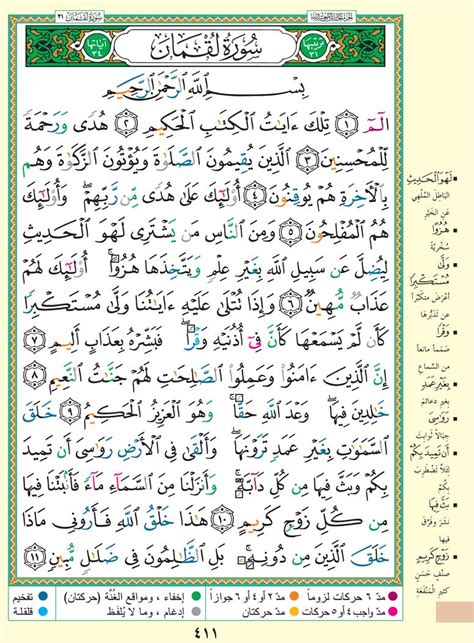 سُورَةُ لُقْمَانَ
ترتيبها ٣١
آياتها ٣٤
بِسْمِ ٱللَّهِ ٱلرَّحْمَٰنِ ٱلرَّحِيمِ
الٓمٓ ١ تِلْكَ ءَايَٰتُ ٱلْكِتَٰبِ ٱلْحَكِيمِ ٢ هُدًى وَرَحْمَةً
لِّلْمُحْسِنِينَ ٣ ٱلَّذِينَ يُقِيمُونَ ٱلصَّلَوٰةَ وَيُؤْتُونَ ٱلزَّكَوٰةَ وَهُم
بِٱلْءَاخِرَةِ هُمْ يُوقِنُونَ ٤ أُو۟لَٰٓئِكَ عَلَىٰ هُدًى مِّن رَّبِّهِمْ ۖ وَأُو۟لَٰٓئِكَ
هُمُ ٱلْمُفْلِحُونَ ٥ وَمِنَ ٱلنَّاسِ مَن يَشْتَرِى لَهْوَ ٱلْحَدِيثِ
لِيُضِلَّ عَن سَبِيلِ ٱللَّهِ بِغَيْرِ عِلْمٍ وَيَتَّخِذَهَا هُزُوًا ۚ أُو۟لَٰٓئِكَ لَهُمْ
عَذَابٌ مُّهِينٌ ٦ وَإِذَا تُتْلَىٰ عَلَيْهِ ءَايَٰتُنَا وَلَّىٰ مُسْتَكْبِرًا
كَأَن لَّمْ يَسْمَعْهَا كَأَنَّ فِىٓ أُذُنَيْهِ وَقْرًا ۖ فَبَشِّرْهُ بِعَذَابٍ أَلِيمٍ ٧
إِنَّ ٱلَّذِينَ ءَامَنُوا۟ وَعَمِلُوا۟ ٱلصَّٰلِحَٰتِ لَهُمْ جَنَّٰتُ ٱلنَّعِيمِ ٨
خَٰلِدِينَ فِيهَا ۖ وَعْدَ ٱللَّهِ حَقًّا ۚ وَهُوَ ٱلْعَزِيزُ ٱلْحَكِيمُ ٩ خَلَقَ
ٱلسَّمَٰوَٰتِ بِغَيْرِ عَمَدٍ تَرَوْنَهَا ۖ وَأَلْقَىٰ فِى ٱلْأَرْضِ رَوَٰسِىَ أَن تَمِيدَ
بِكُمْ وَبَثَّ فِيهَا مِن كُلِّ دَآبَّةٍ ۚ وَأَنزَلْنَا مِنَ ٱلسَّمَآءِ مَآءً فَأَنۢبَتْنَا فِيهَا
مِن كُلِّ زَوْجٍ كَرِيمٍ ١٠ هَٰذَا خَلْقُ ٱللَّهِ فَأَرُونِى مَاذَا
خَلَقَ ٱلَّذِينَ مِن دُونِهِۦ ۚ بَلِ ٱلظَّٰلِمُونَ فِى ضَلَٰلٍ مُّبِينٍ ١١
لَهْوَ ٱلْحَدِيثِ
الباطلَ المُلْهِي
عن الخَيْر
هُزُوًا
سُخْرِيَّة
وَلَّى
مُسْتَكْبِرًا
أعْرَضَ متكبّرًا
عن تَدَبُّرِها
وَقْرًا
صَمَمًا مانعًا
من السَّماع
بِغَيْرِ عَمَدٍ
بغير دعائم
رَوَاسِيَ
جِبالًا ثوابتَ
أَن تَمِيدَ بِكُمْ
لئلّا تَضْطَرِبَ
بكم
بَثَّ فِيهَا
نَشَرَ وفَرَّقَ
فيها
زَوْجٍ كَرِيمٍ
صِنْفٍ حَسَنٍ
كثيرِ المنفعة
مدّ ٦ حركات لزومًا
مدّ ٢ أو ٤ أو ٦ جوازًا
إخفاء، ومواقع الغُنَّة (حركتان)
تفخيم
مدّ واجب ٤ أو ٥ حركات
مدّ حركتان
إدغام، وما لا يُلفَظ
قلقلة
٤١١